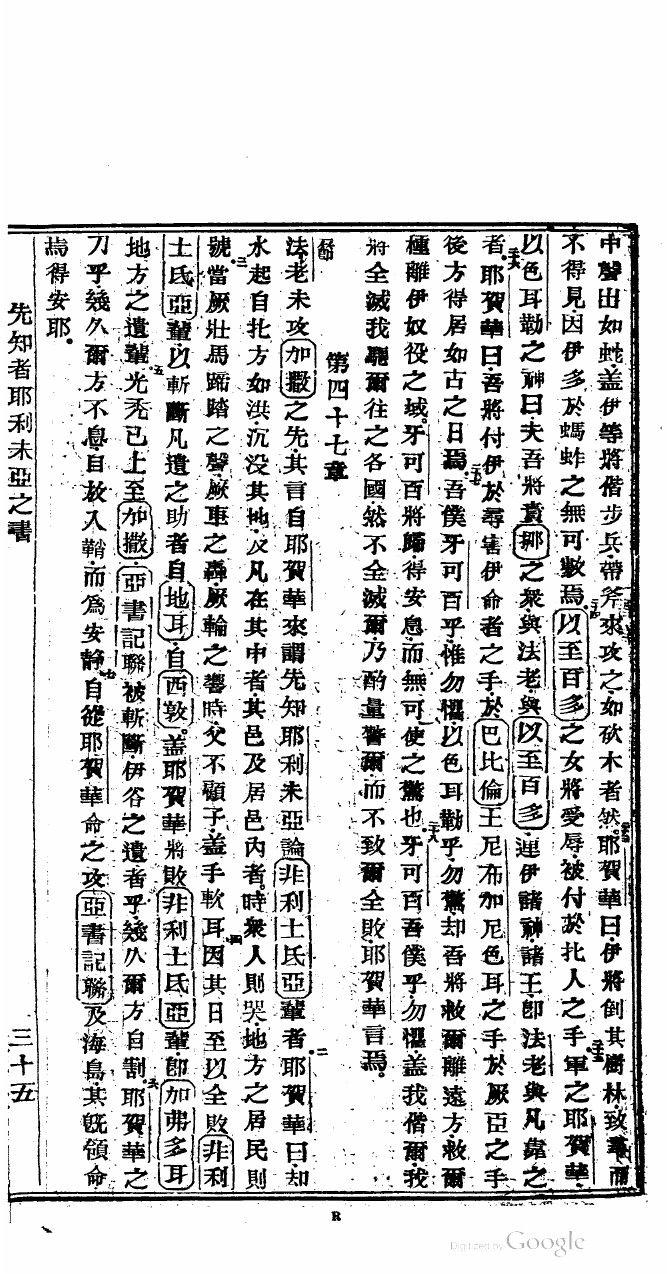 中聲出如蛇蓋伊等將偕步兵帶斧來攻之如砍木者然耶賀華曰伊將倒其樹林致
不得見因伊多於螞蚱之無可數焉以至百多之女將受辱被付於北人之手軍之耶賀華
以色耳勒之神曰夫吾將責鄉之衆與法老與以至百多連伊諸神諸王卽法老與凡靠之
者耶賀華曰吾將付伊於尋害伊命者之手於巴比倫王尼布加尼色耳之手於厥臣之手
後方得居如古之日焉吾僕牙可百乎惟勿懼以色耳勒乎勿驚却吾將救爾離遠方救爾
種離伊奴役之域牙可百將歸得安息而無可使之驚也牙可百吾僕乎勿懼蓋我偕爾我
將全滅我驅爾往之各國然不全滅爾乃酌量警爾而不致爾全敗耶賀華言焉
第四十七章
法老未攻加撒之先其言自耶賀華來謂先知耶利未亞論非利士氏亞輩者耶賀華曰却
水起自北方如洪沉没其地及凡在其中者其邑及居邑內者時衆人則哭地方之居民則
號當厥壯馬蹄踏之聲厥車之轟厥輪之響時父不顧子蓋手軟耳因其日至以全敗非利
士氏亞輩以斬斷凡遺之助者自地耳自西敦蓋耶賀華將敗非利士氏亞輩卽加弗多耳
地方之遺輩光禿已上至加撒亞書記聯被斬斷伊谷之遺者乎幾久爾方自割耶賀華之
刀乎幾久爾方不息自放入鞘而爲安静自從耶賀華命之攻亞書記聯及海島其旣領命
焉得安耶
先知者耶利未亞之書
三十五
R
Digitized by Google